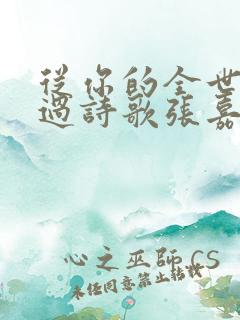 從你的全世
過詩歌張嘉
心之巫師 CS
未经同意禁止转载